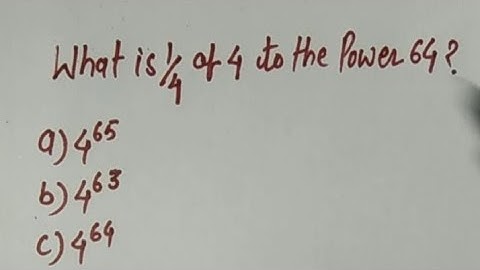 What is 1/4 of 4 to the Power 64?
a) 4^65
b) 4^63
c) 4^64